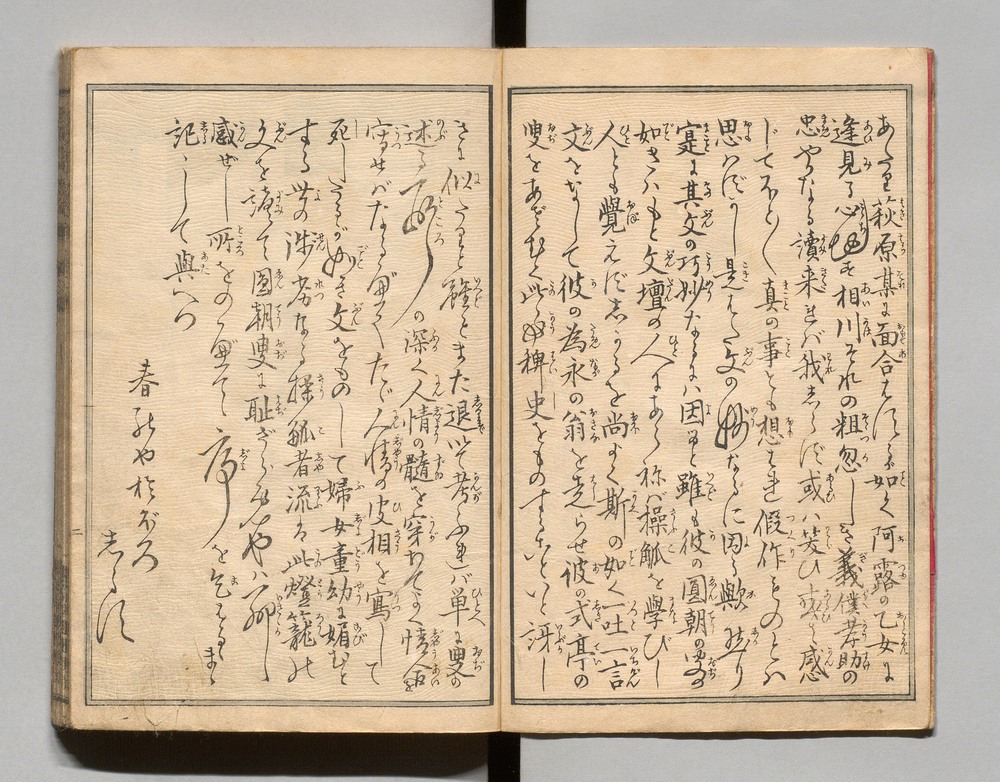 あたり萩原某に面合はするが如く阿露の乙女に
逢見る心地す相川それの粗忽しき義僕孝助の
忠やかなる讀来れバ我しらず或ハ笑ひ或ハ感
じてほと〱真の事とも想はれ假作ものとハ
思ハずかし是はた文の妙なるに因る歟然り
寔に其文の巧妙なるにハ因ると雖も彼の圓朝の叟の
如きハもと文壇の人にあらねバ操觚を學びし
人とも覺えずしかるを尚よく斯の如く一吐一言
文をなして彼の為永の翁を走らせ彼の式亭の
叟をあざむく此の好稗史をものすることいと訝し
きに似たりと雖どまた退いて考ふれバ単に叟の
述る所の深く人情の髄を穿ちてよく情合を
写せバなるべくたゞ人情の皮相を寫して
死したるが如き文をものして婦女童幼に媚むと
する世の浅劣なる操觚者流ハ此燈籠の
文を讀て圓朝叟に耻ざらめやハ聊
感ぜし所をのべて序を乞はるゝまゝ
記しして與へつ
春のやおぼろ
しるす